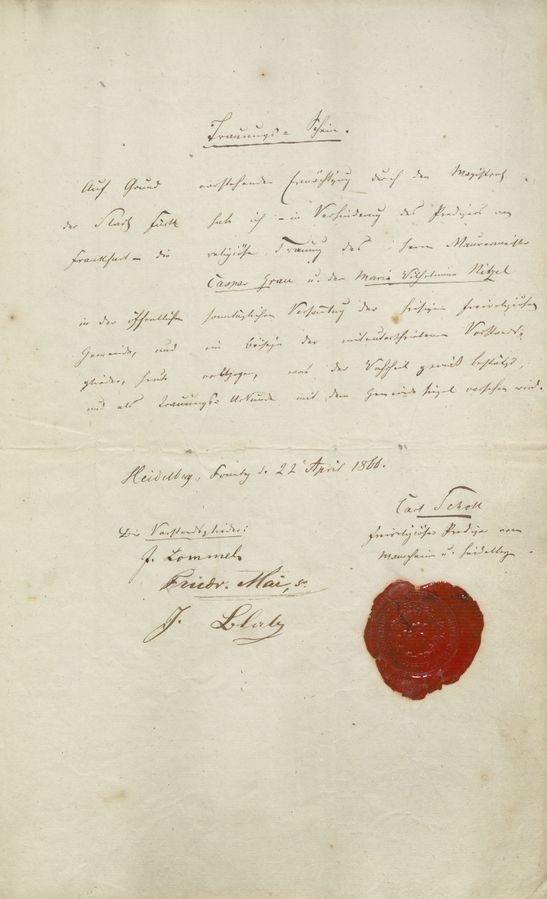 Trauungs-Schein.
Auf Grund vorstehender Ermächtigung durch den Magistrat
der Stadt habe ich – in Verhinderung des Predigers von
Frankfurt – die religiöse Trauung des Herrn Maurermeister
Caspar Grau u. der Maria Wilhelmina Nitzel
in der öffentlichen sonntäglichen Versammlung der hiesigen freireligiösen
Gemeinde, und im Beisein der mitunterschriebenen Vorstands-
glieder, heute vollzogen, was der Wahrheit gemäß bestätigt,
und als Trauungs-Urkunde mit dem Gemeinde Siegel versehen wird.
Heidelberg, Sonntag d. 22 April 1860.
Carl Scholl
freireligiöser Prediger von
Mannheim u. Heidelberg
Die Vorstandsglieder:
J. Lommel
Friedr. Mai, sr.
J.